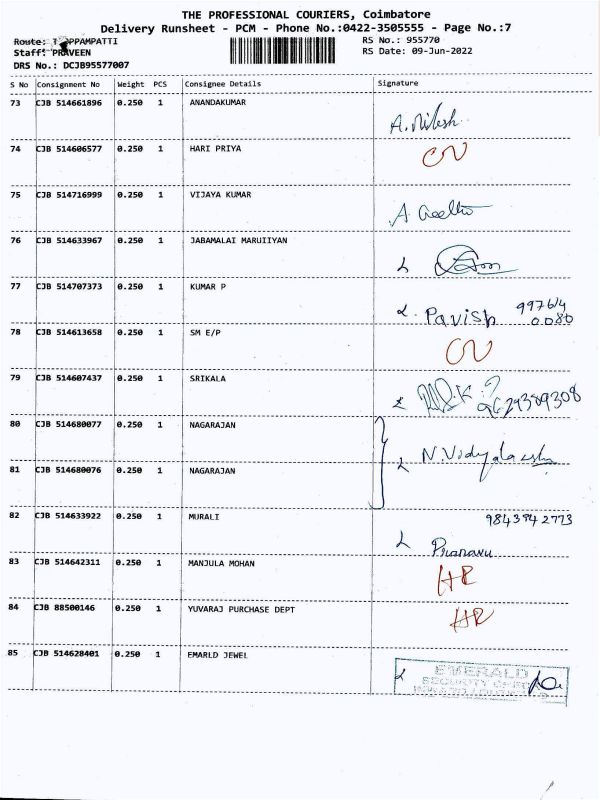 THE PROFESSIONAL COURIERS, Coimbatore
Delivery Runsheet - PCM - Phone No.:0422-3505555 - Page No.:7
Route: PPAMPATTI RS No.: 955770
Staff: PRAVEEN RS Date: 09-Jun-2022
DRS No.: DCJB95577007
S No Consignment No Weight PCS Consignee Details Signature
73 CJB 514661896 0.250 1 ANANDAKUMAR
74 CJB 514606577 0.250 1 HARI PRIYA
75 CJB 514716999 0.250 1 VIJAYA KUMAR
76 CJB 514633967 0.250 1 JABAMALAI MARUIIYAN
77 CJB 514707373 0.250 1 KUMAR P Pavish 997614
0080
78 CJB 514613658 0.250 1 SM E/P
79 CJB 514607437 0.250 1 SRIKALA 9629389308
80 CJB 514680077 0.250 1 NAGARAJAN
N.Vidyalakshmi
81 CJB 514680076 0.250 1 NAGARAJAN
82 CJB 514633922 0.250 1 MURALI 9843942773
Pranavu
83 CJB 514642311 0.250 1 MANJULA MOHAN HR
84 CJB 88500146 0.250 1 YUVARAJ PURCHASE DEPT HR
85 CJB 514628401 0.250 1 EMARLD JEWEL
EMERALD
SECURITY